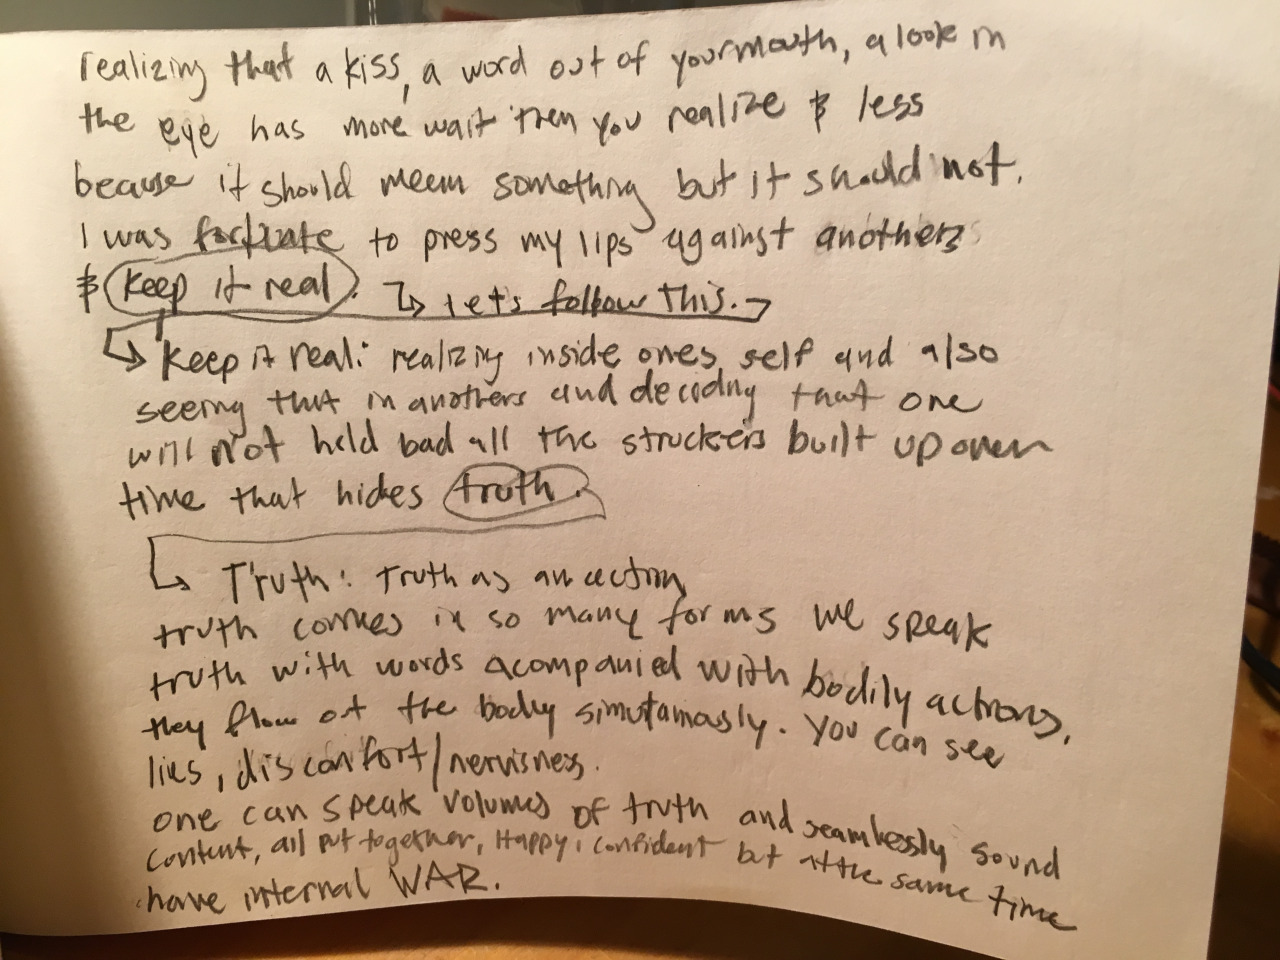 realizing that a kiss, a word out of your mouth, a look in
the eye has more wait then you realize & less
because it should meem something but it should not.
I was fortuate to press my lips against anothers
& keep it real. Let's follow this.
Keep it real: realizing inside ones self and also
seeing that in anothers and decoding that one
will not held bad all the struckers built up over
time that hides truth.
Truth: Truth as an action
truth comes in so many forms we speak
truth with words acompanied with bodily actions,
they flow out the body simutamously. You can see
lies, disconfort/nervisness.
one can speak volumes of truth and seamlessly sound
content, all put together, Happy, confident but at the same time
have internal WAR.